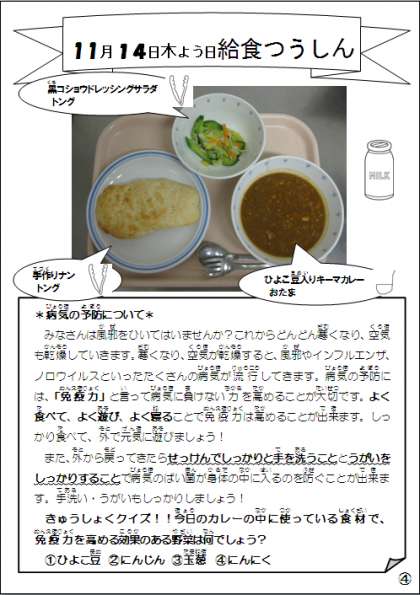 11月14日木よう日給食つうしん
黒コショウドレッシングサラダ
トング
MILK
手作りナン
トング
ひよこ豆入りキーマカレー
おたま
＊病気の予防について＊
みなさんは風邪をひいてはいませんか？これからどんどん寒くなり、空気
も乾燥していきます。寒くなり、空気が乾燥すると、風邪やインフルエンザ、
ノロウイルスといったたくさんの病気が流行してきます。病気の予防に
は、「免疫力」と言って病気に負けない力を高めることが大切です。よく
食べて、よく遊び、よく寝ることで免疫力は高めることが出来ます。しっ
かり食べて、外で元気に遊びましょう！
また、外から戻ってきたらせっけんでしっかりと手を洗うこととうがいを
しっかりすることで病気のばい菌が身体の中に入るのを防ぐことが出来ま
す。手洗い・うがいもしっかりしましょう！
きゅうしょくクイズ！！今日のカレーの中に使っている食材で、
免疫力を高める効果のある野菜は何でしょう？
①ひよこ豆 ②にんじん ③玉葱 ④にんにく
④